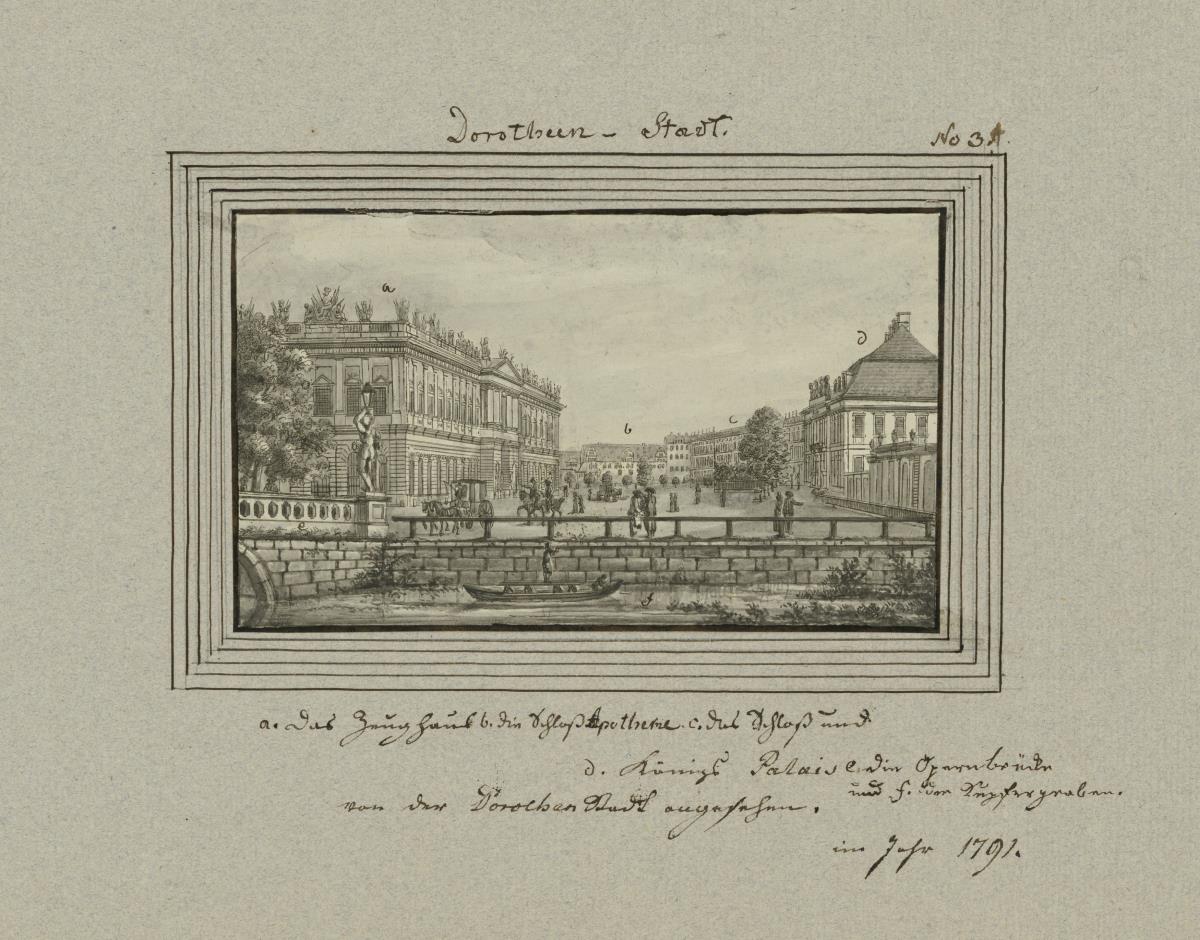 Dorotheen - Stadt.
No 3
a
d
b
c
e
f
a. Das Zeughaus b. die Schloß Apotheke. c. das Schloß und
d. Königs Palais e. die Opernbrücke
und f. der Kupfergraben.
von der Dorothen Stadt angesehen.
im Jahr 1791.